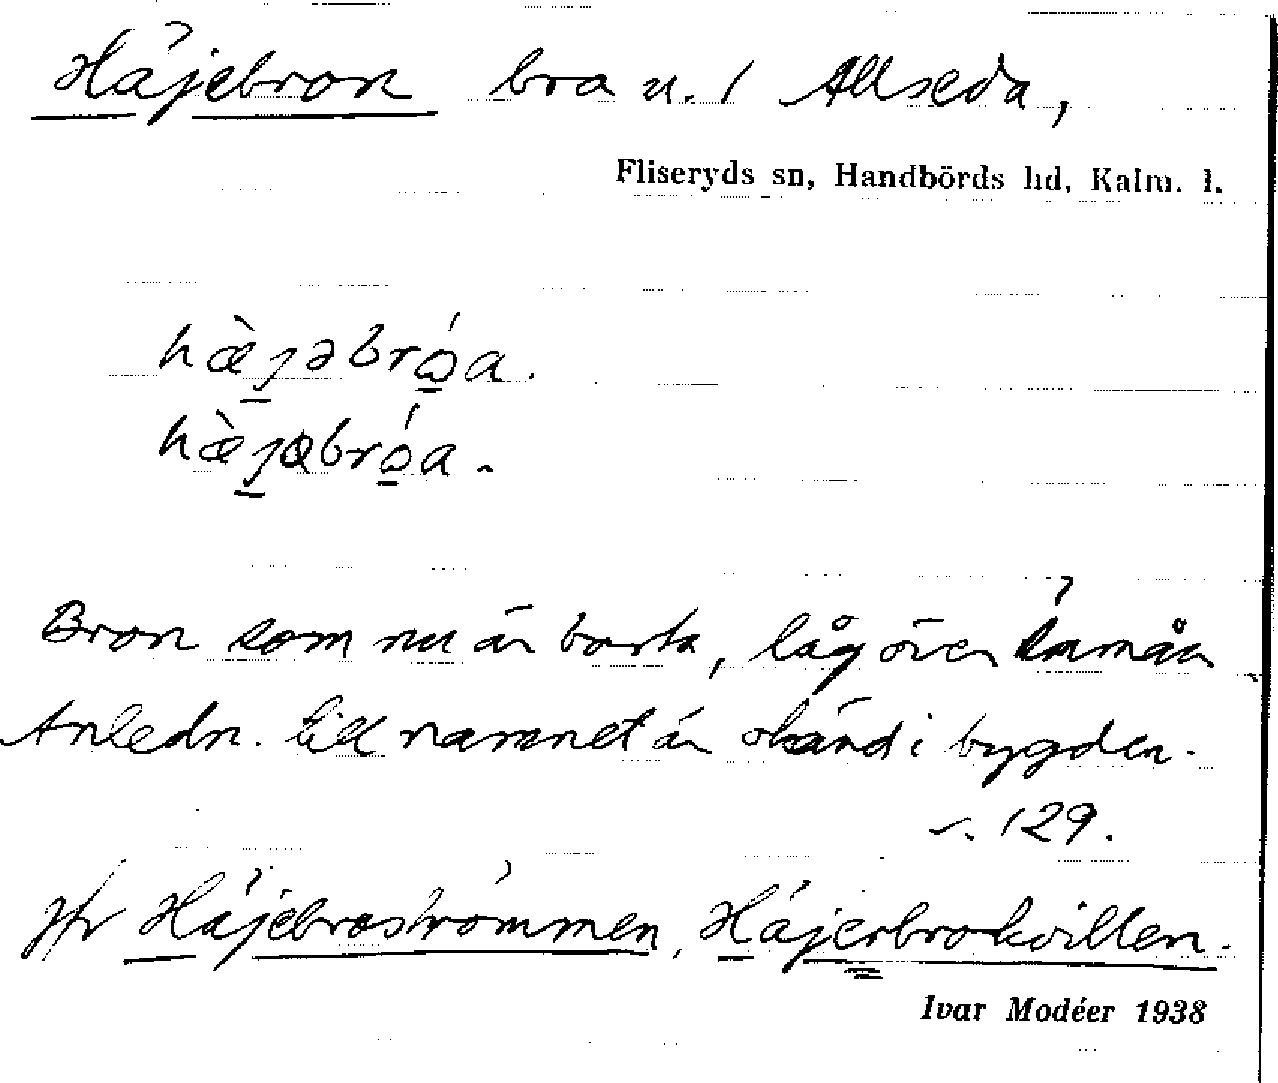 Häjebron bro u. / Allseda,
Fliseryds sn, Handbörds hd, Kalm. l.
hæ̀jəbrós̱a.
hæ̀jabróa.
Bron som nu är borta, låg över Emån
Anledn. till namnet är okänd i bygden.
s. 129.
Jfr Häjebroströmmen, Häjerbrokvillen.
Ivar Modéer 1938